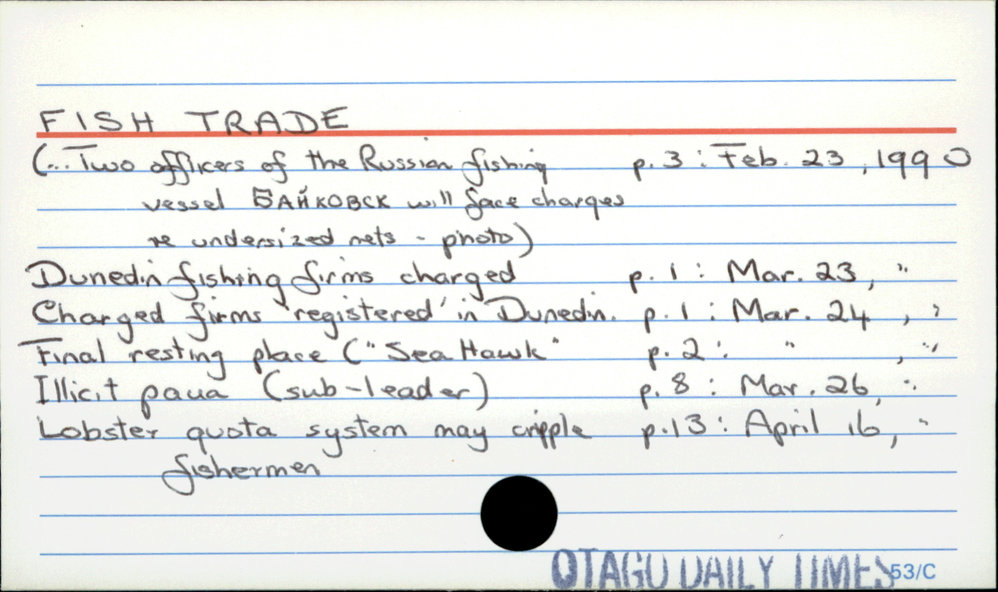 FISH TRADE
(... Two officers of the Russian fishing p. 3 : Feb. 23, 1990
vessel БАЙКОВСК will face charges
re undersized nets - photo)
Dunedin fishing firms charged p. 1 : Mar. 23, "
Charged firms 'registered' in Dunedin. p. 1 : Mar. 24, "
Final resting place ("Sea Hawk" p. 2 : " , "
Illicit paua (sub-leader) p. 8 : Mar. 26, "
Lobster quota system may cripple p. 13 : April 16, "
fishermen
OTAGO DAILY TIMES 53/C